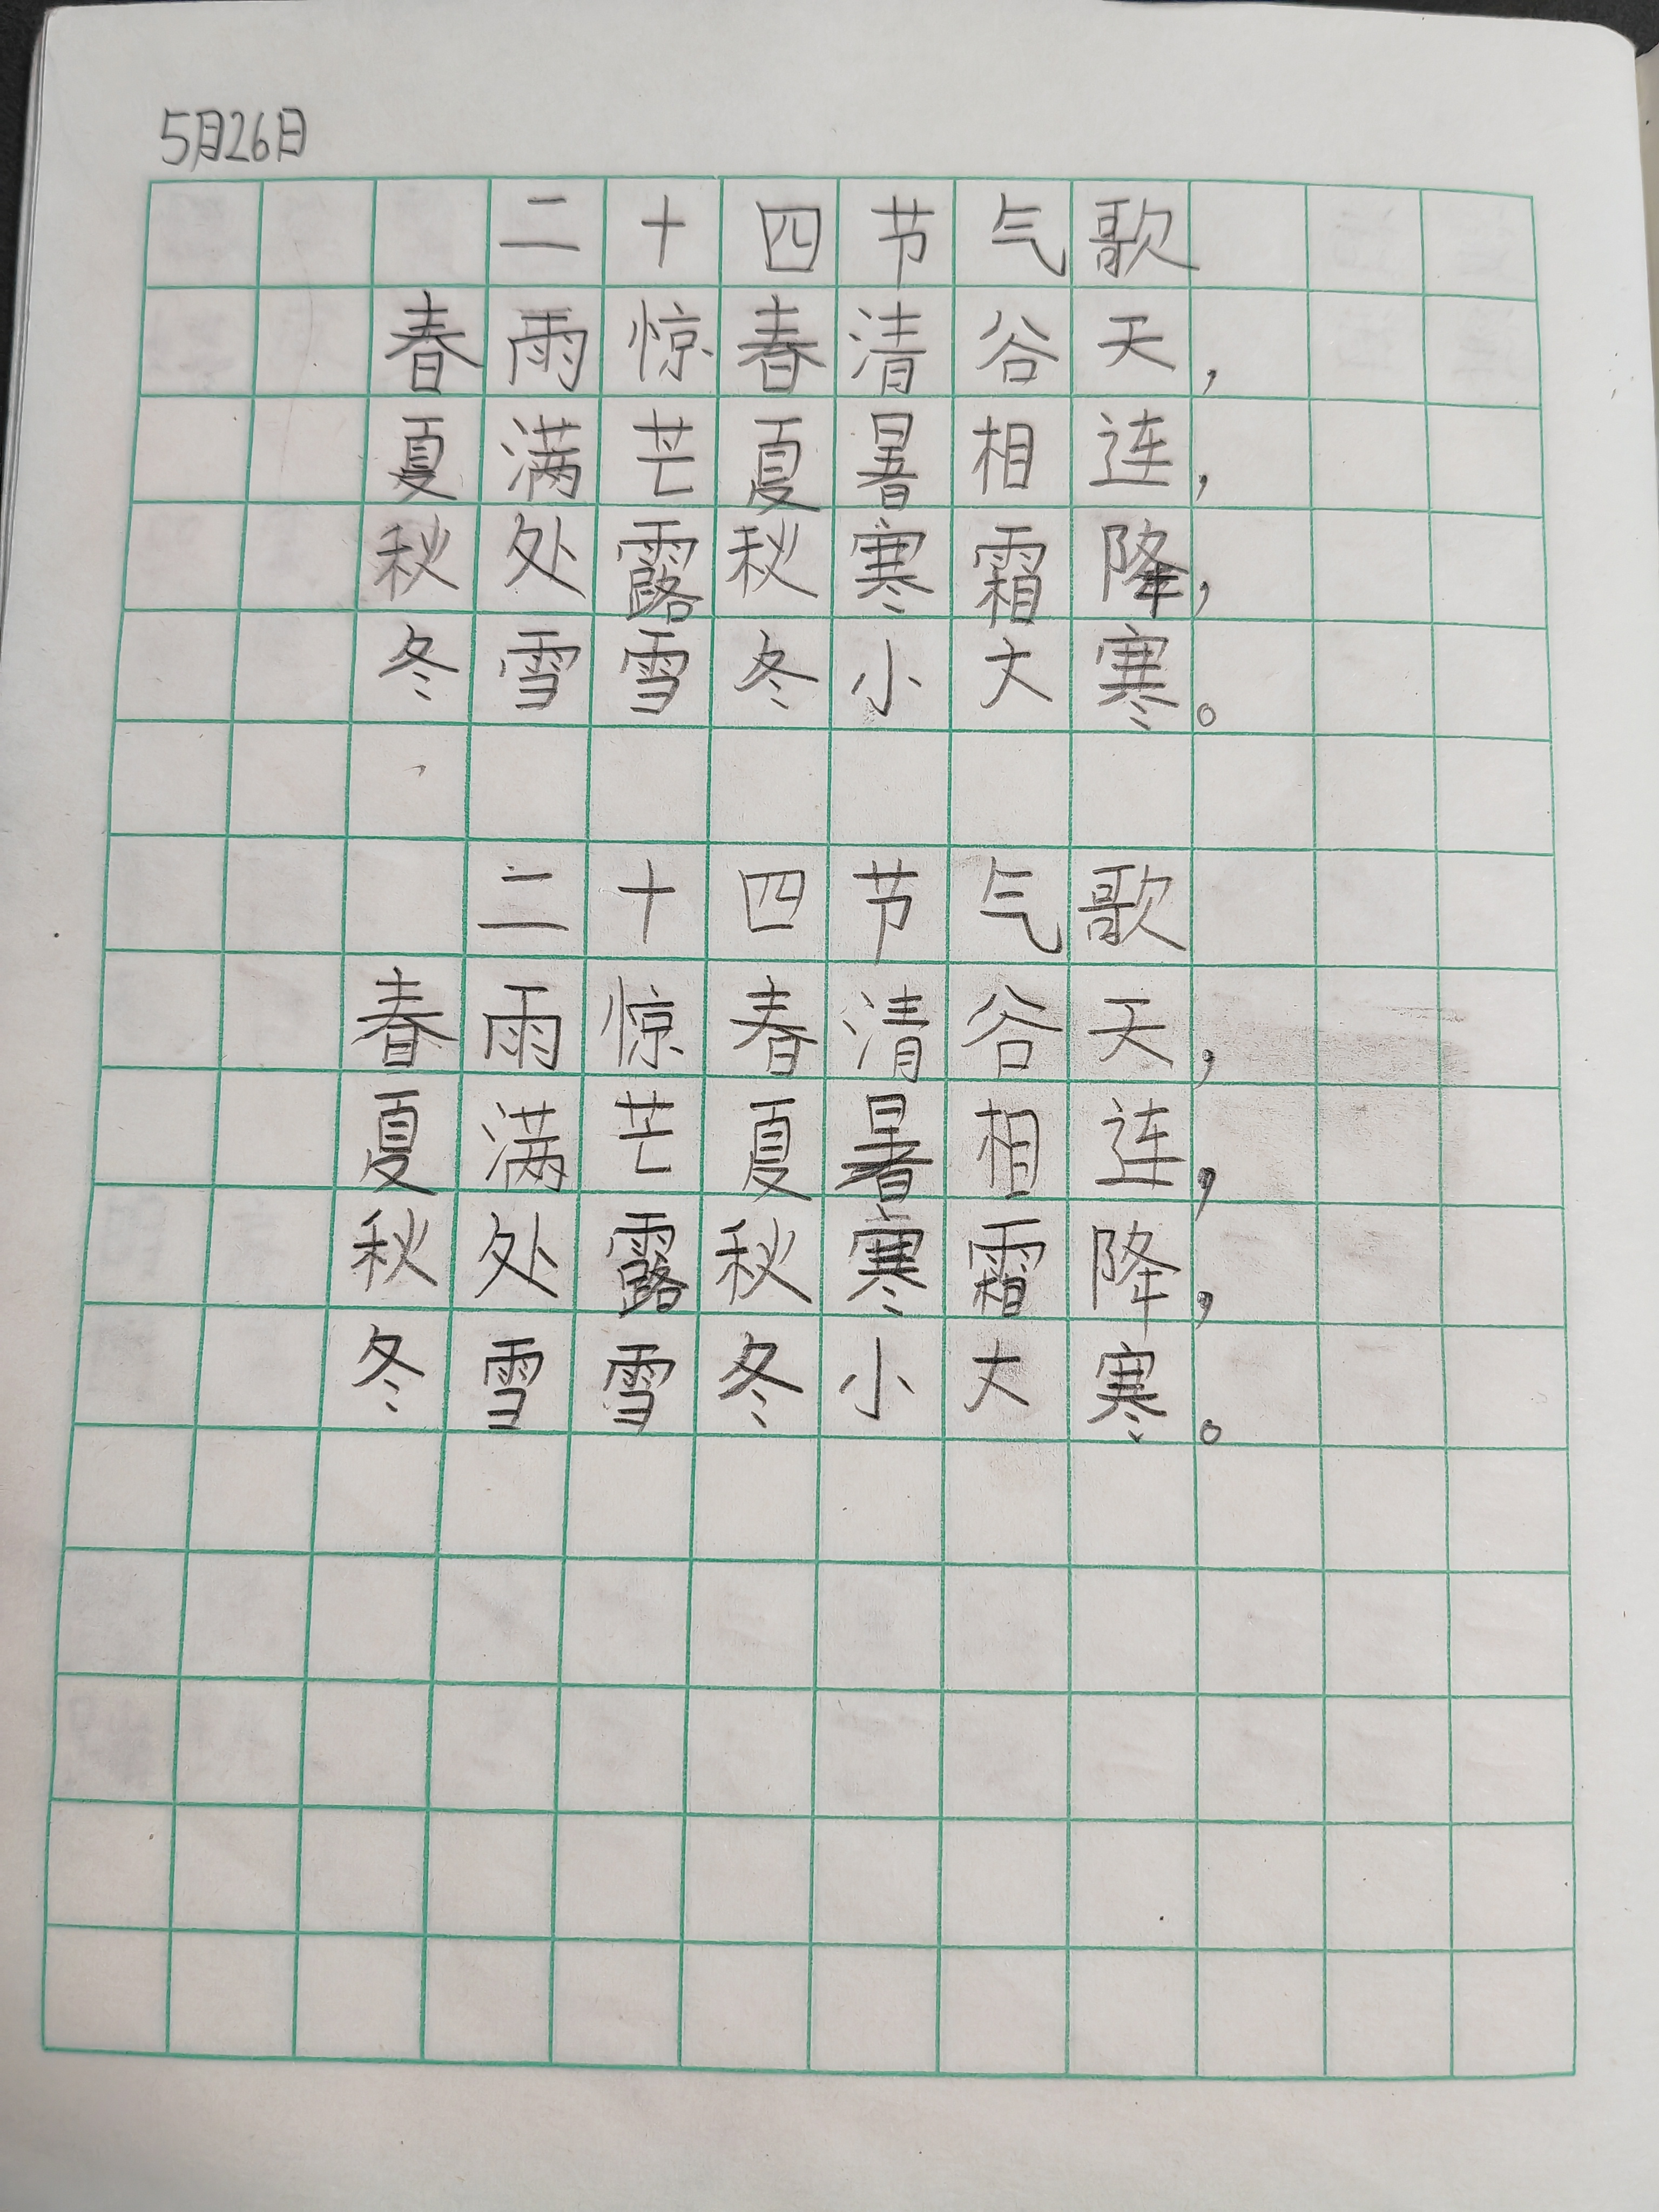 5月26日
二十四节气歌
春雨惊春清谷天，
夏满芒夏暑相连，
秋处露秋寒霜降，
冬雪雪冬小大寒。
二十四节气歌
春雨惊春清谷天，
夏满芒夏暑相连，
秋处露秋寒霜降，
冬雪雪冬小大寒。